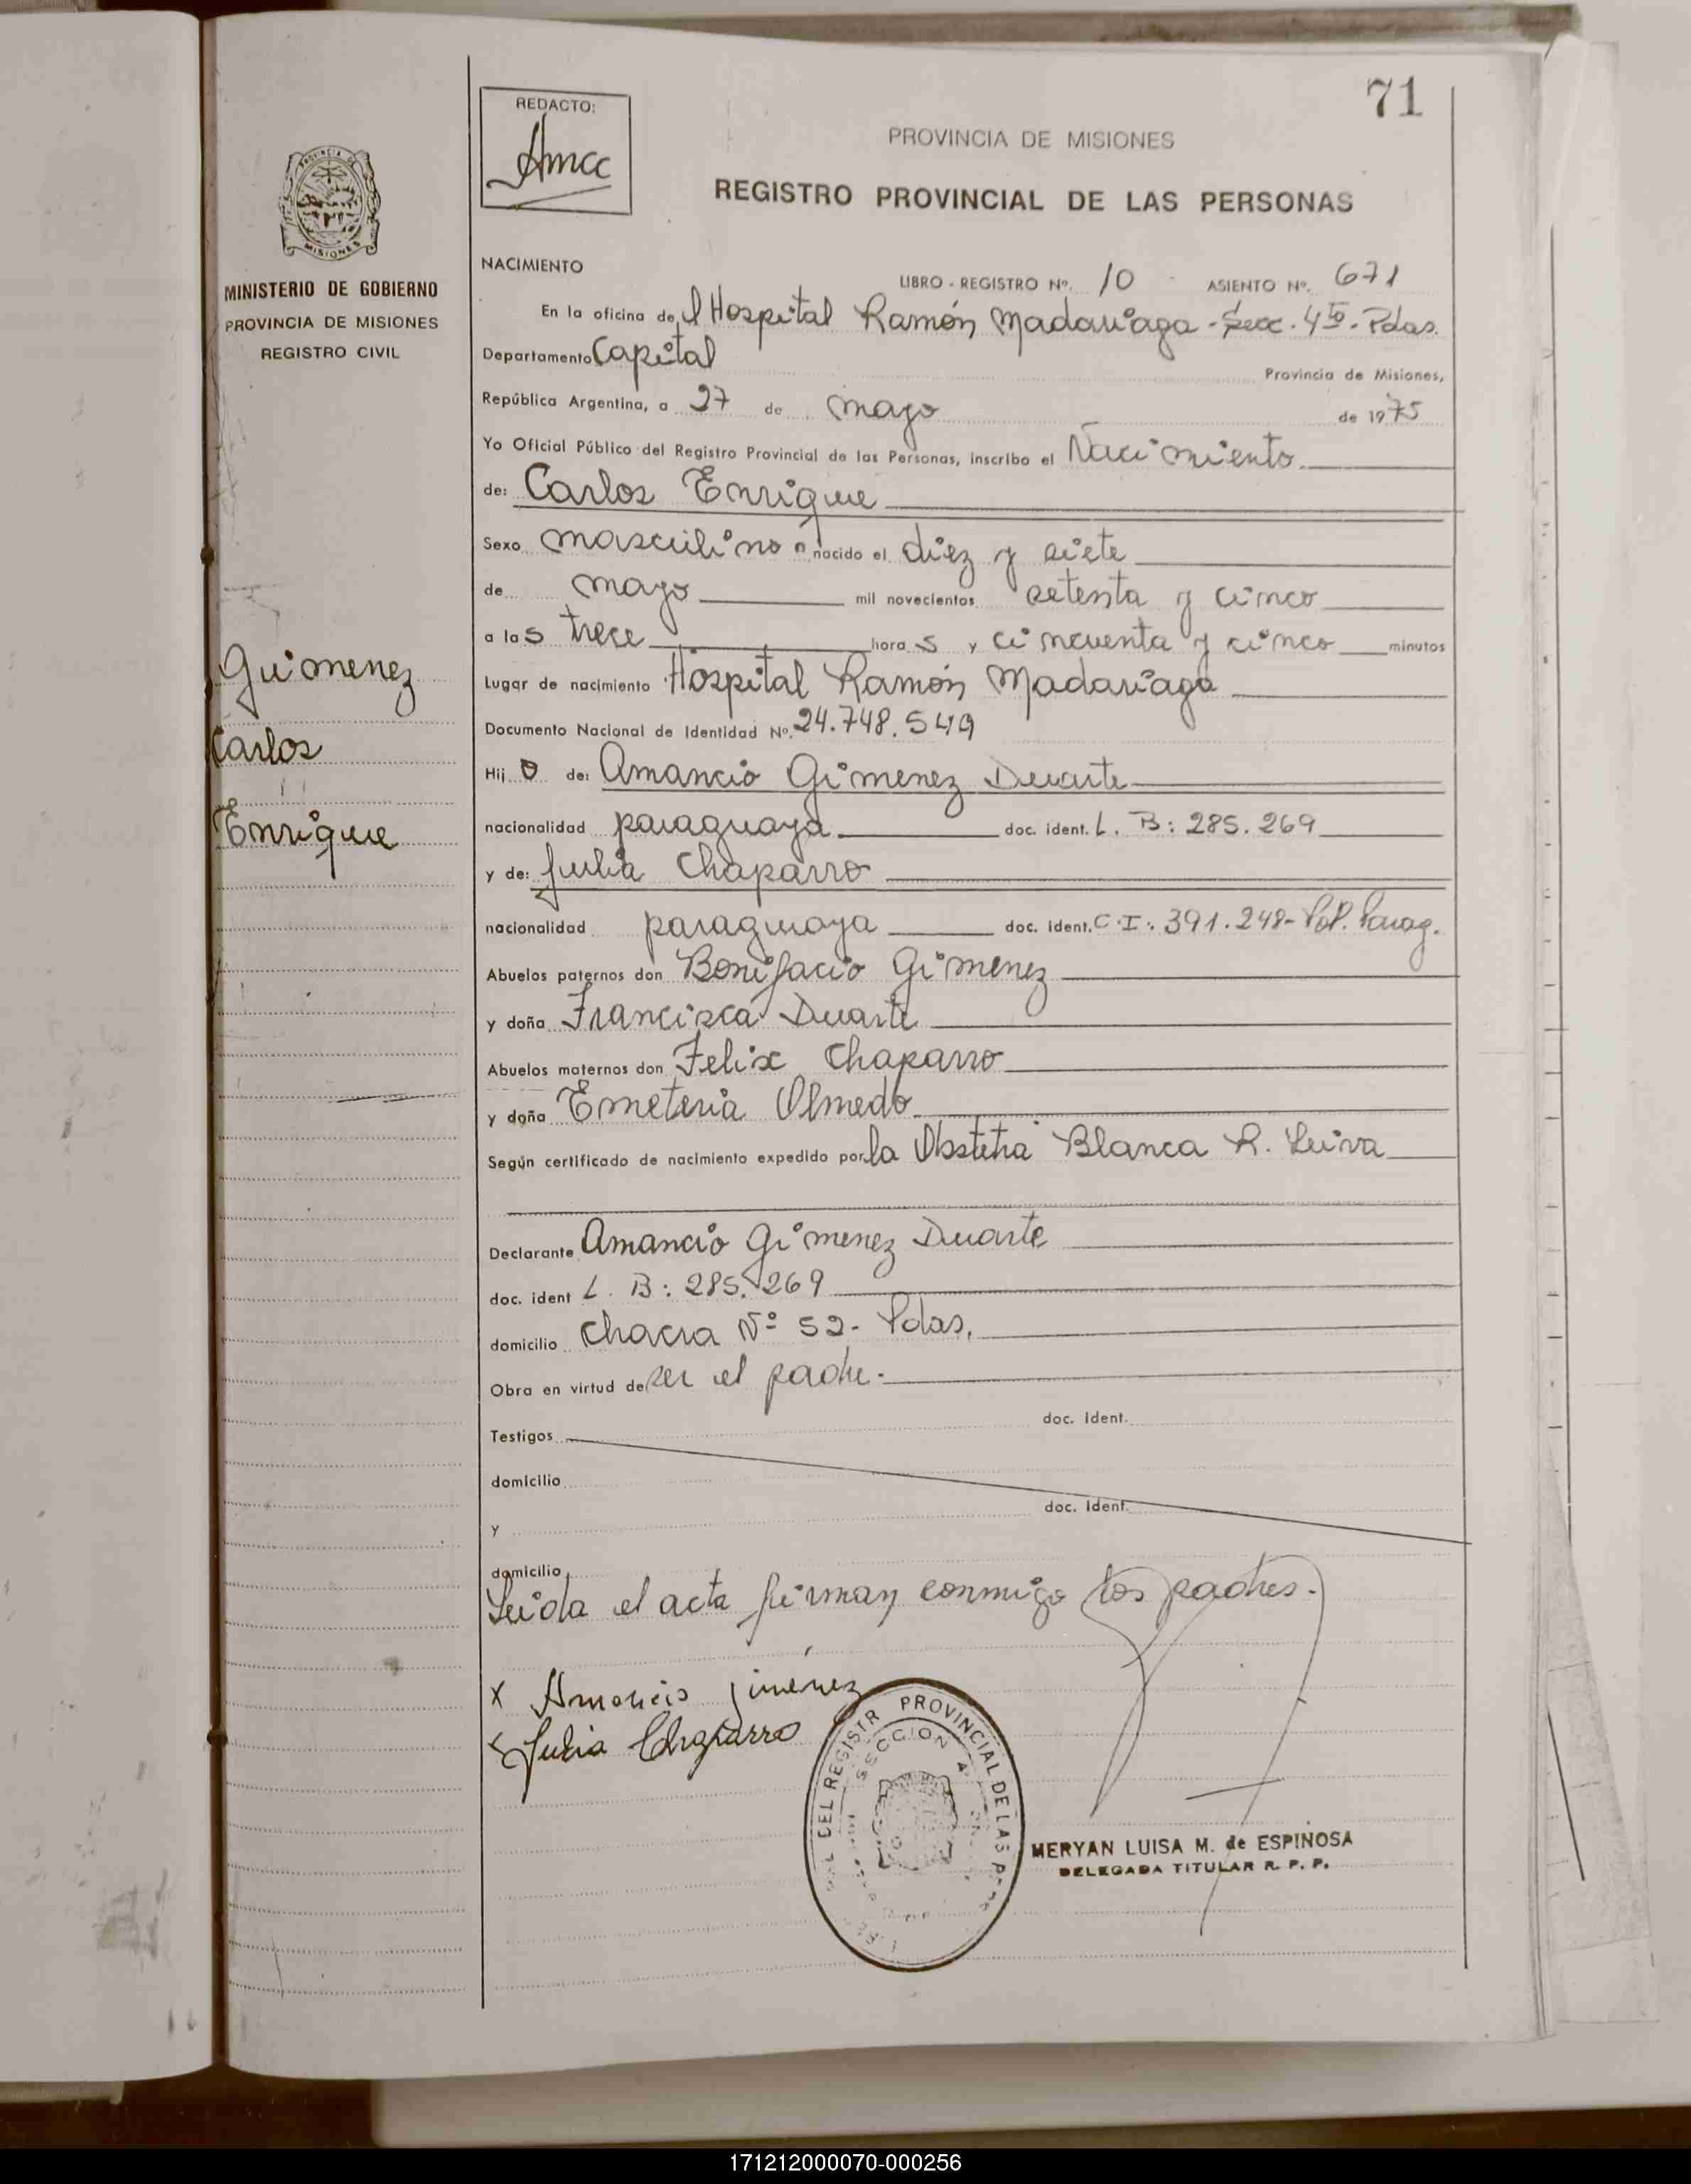 71
REDACTO:
Amcc
PROVINCIA DE MISIONES
REGISTRO PROVINCIAL DE LAS PERSONAS
PROVINCIA DE
MISIONES
MINISTERIO DE GOBIERNO
PROVINCIA DE MISIONES
REGISTRO CIVIL
NACIMIENTO
LIBRO - REGISTRO Nº. 10 ASIENTO Nº. 671
En la oficina del Hospital Ramón Madariaga - Secc. 4ta. Pdas.
Departamento Capital
Provincia de Misiones,
República Argentina, a 27 de mayo de 1975
Yo Oficial Público del Registro Provincial de las Personas, inscribo el Nacimiento
de: Carlos Enrique
Sexo masculino nacido el diez y siete
de mayo mil novecientos setenta y cinco
a las trece horas y cincuenta y cinco minutos
Lugar de nacimiento Hospital Ramón Madariaga
Documento Nacional de Identidad Nº. 24.748.549
Hijo de: Amancio Gimenez Duarte
nacionalidad paraguaya doc. ident. L. B: 285.269
y de: Julia Chaparro
nacionalidad paraguaya doc. ident. C.I: 391.248- Pol. Parag.
Abuelos paternos don Bonifacio Gimenez
y doña Francisca Duarte
Abuelos maternos don Felix Chaparro
y doña Emeteria Olmedo
Según certificado de nacimiento expedido por la Obstetra Blanca R. Leiva
Declarante Amancio Gimenez Duarte
doc. ident L. B: 285.269
domicilio Chacra Nº 52- Pdas.
Obra en virtud de ser el padre.
doc. ident.
Testigos
domicilio
doc. ident.
y
domicilio
Leida el acta firman conmigo los padres.
Gimenez
Carlos
Enrique
X Amancio Jimenez
Julia Chaparro
DEL REGISTR PROVINCIAL DE LAS
SECCION 4
MERYAN LUISA M. de ESPINOSA
DELEGADA TITULAR R. P. P.
171212000070-000256